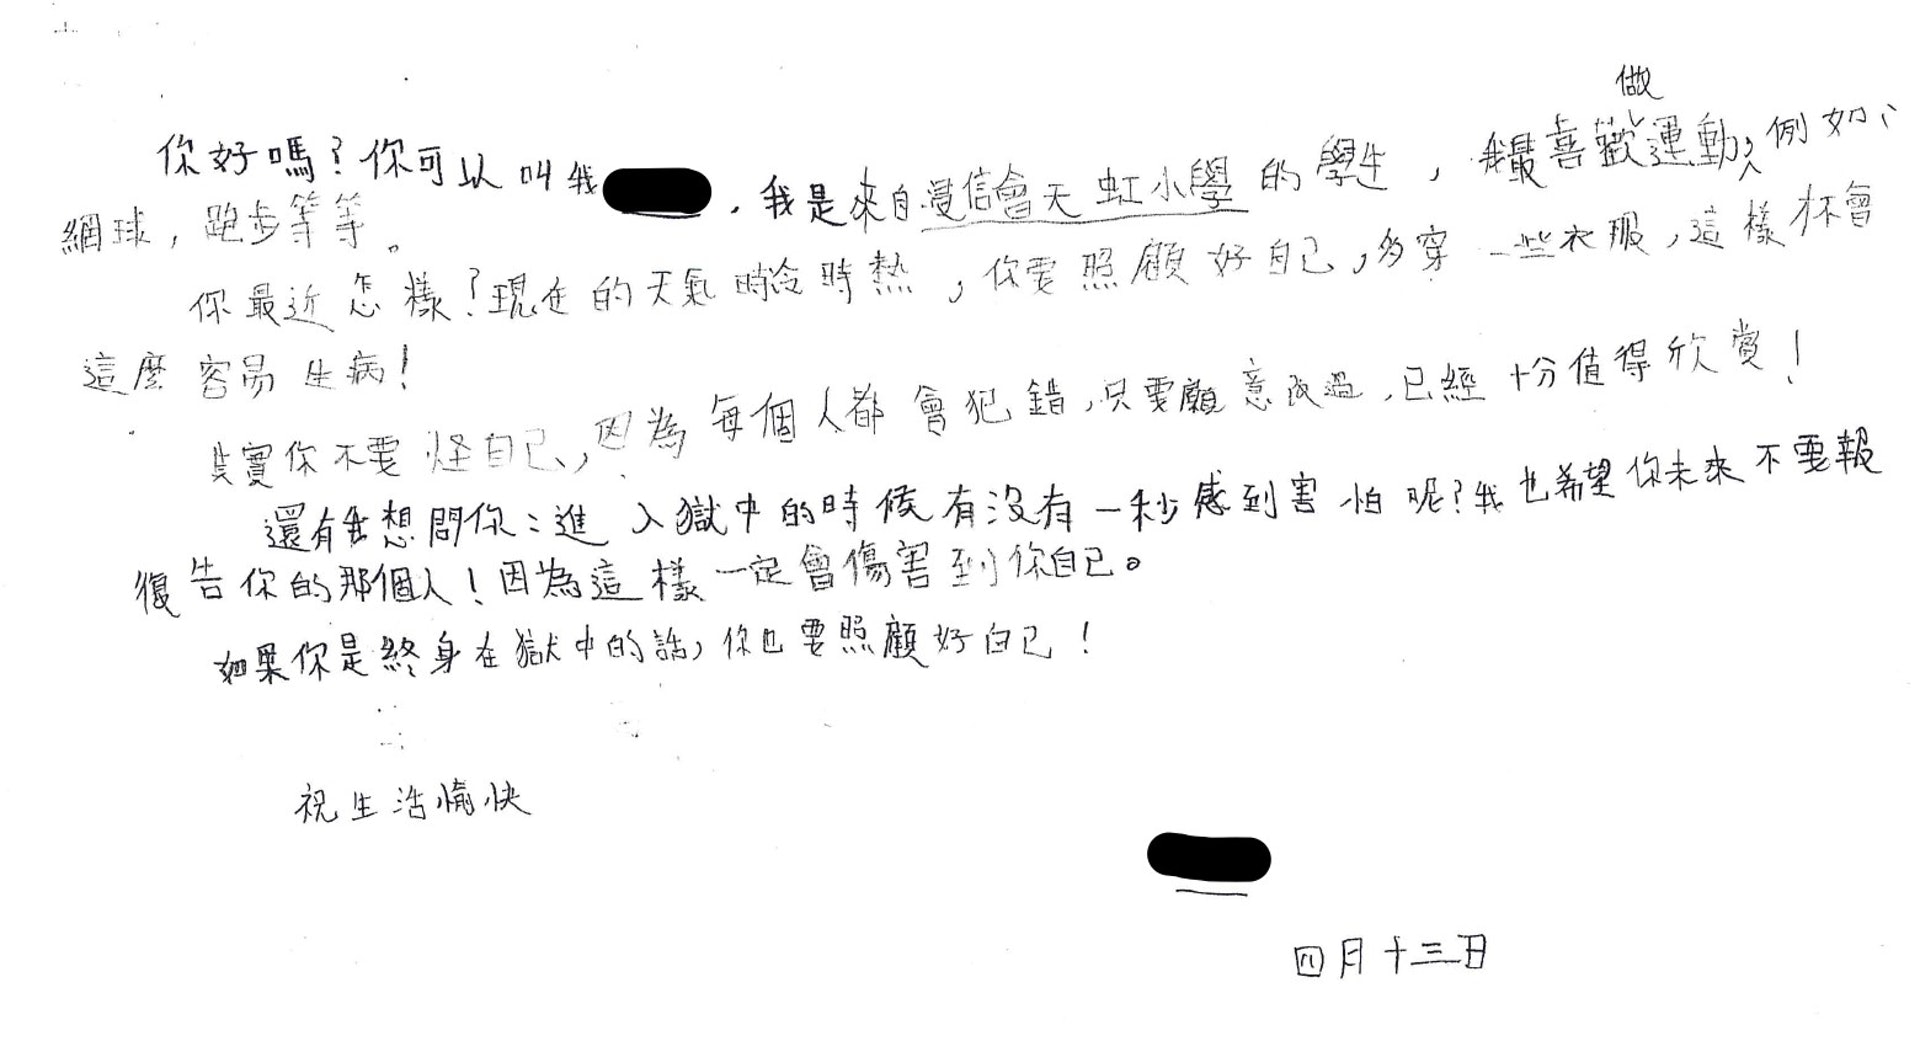 你好嗎？你可以叫我，我是來自浸信會天虹小學的學生，我最喜歡做運動，例如：
網球，跑步等等。
你最近怎樣？現在的天氣時冷時熱，你要照顧好自己，多穿一些衣服，這樣不會
這麼容易生病！
其實你不要怪自己，因為每個人都會犯錯，只要願意改過，已經十分值得欣賞！
還有我想問你：進入獄中的時候有沒有一秒感到害怕呢？我也希望你未來不要報
復告你的那個人！因為這樣一定會傷害到你自己。
如果你是終身在獄中的話，你也要照顧好自己！
祝生活愉快
四月十三日